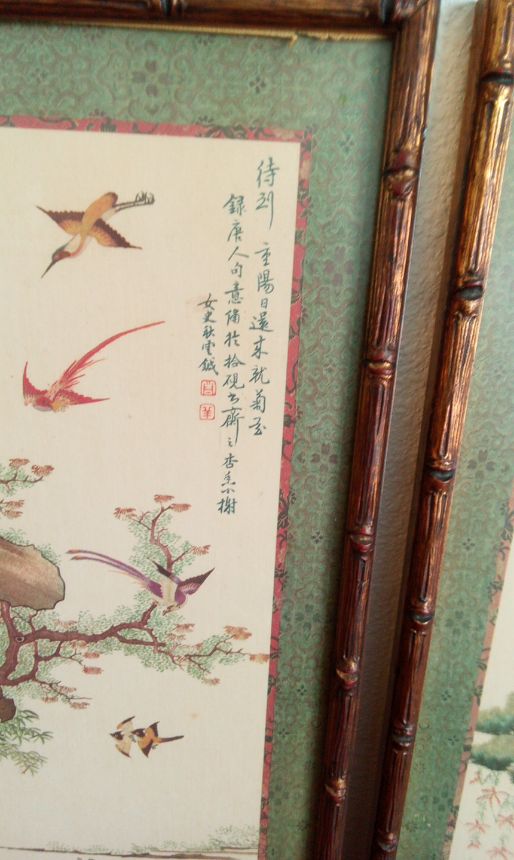 待到重陽日還來就菊花
錄唐人句意隔於拾硯出齋之杏香小榭
女史秋雲鍼